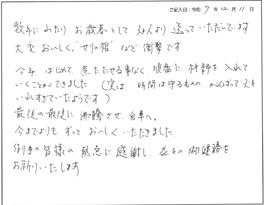 ご記入日:令和 7年12月11日
数年にわたり お歳暮として 友人より 送っていただいてます
大変 おいしく、"せりの根" など 衝撃です
今年 はじめて 煮たたせる事なく 順番に 材料を 入れて
いくことができました(実は、時間は守るものの がんばって火を
いれすぎていたようです)
最後の最後に 沸騰させ、食卓へ。
今までよりも ずっと おいしく いただきました
皆様の 感謝し、益々の御健勝を
お祈りいたします